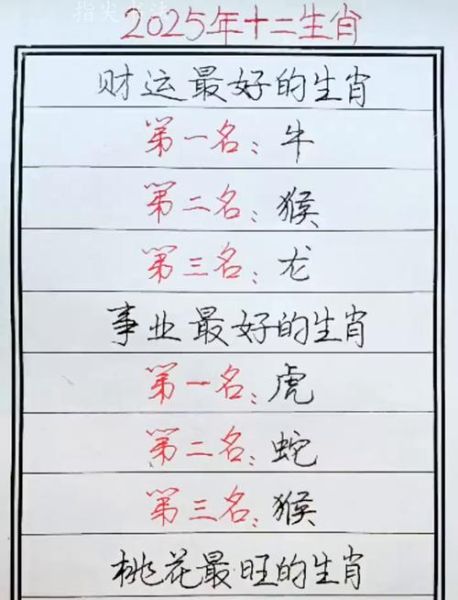 2025年十二生肖
财运最好的生肖
第一名：牛
第二名：猴
第三名：龙
事业最好的生肖
第一名：虎
第二名：蛇
第三名：猴
桃花最旺的生肖